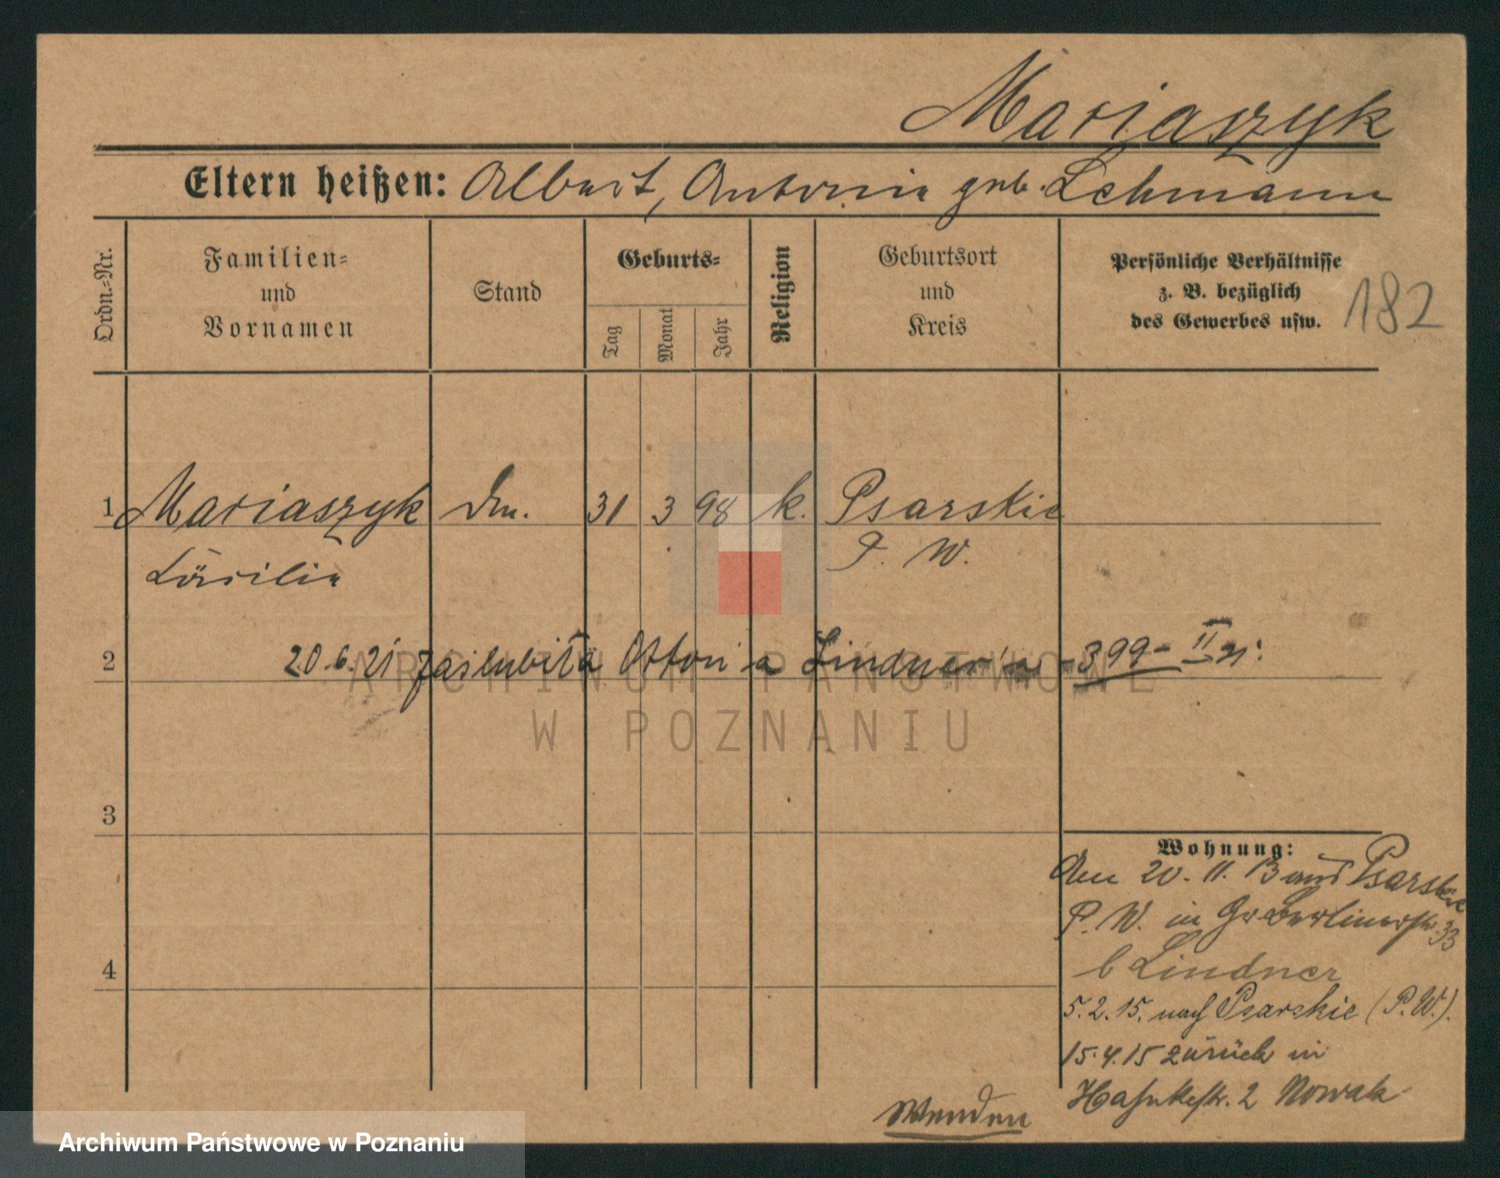 Mariaszyk
Eltern heißen: Albert, Antonie geb. Lehmann
Ordn.-Nr.
Familien-
und
Vornamen
Stand
Geburts-
Tag
Monat
Jahr
Religion
Geburtsort
und
Kreis
Persönliche Verhältnisse
z. B. bezüglich
des Gewerbes usw.
182
1 Mariaszyk Dm. 31 3 98 k. Psarskie
P. W.
Cäcilie
2 20.6.21 zaślubiła Otton'a Lindner'a - 399 - II
3
4
Wohnung:
Am 20. 11. 13 aus Psarskie
P. W. in Gr Berlinerstr. 33
b Lindner
5.2.15. nach Psarskie (P.W.).
15.4.15 zurück in
2 Nowak
Wenden
ARCHIWUM PAŃSTWOWE
W POZNANIU
Archiwum Państwowe w Poznaniu